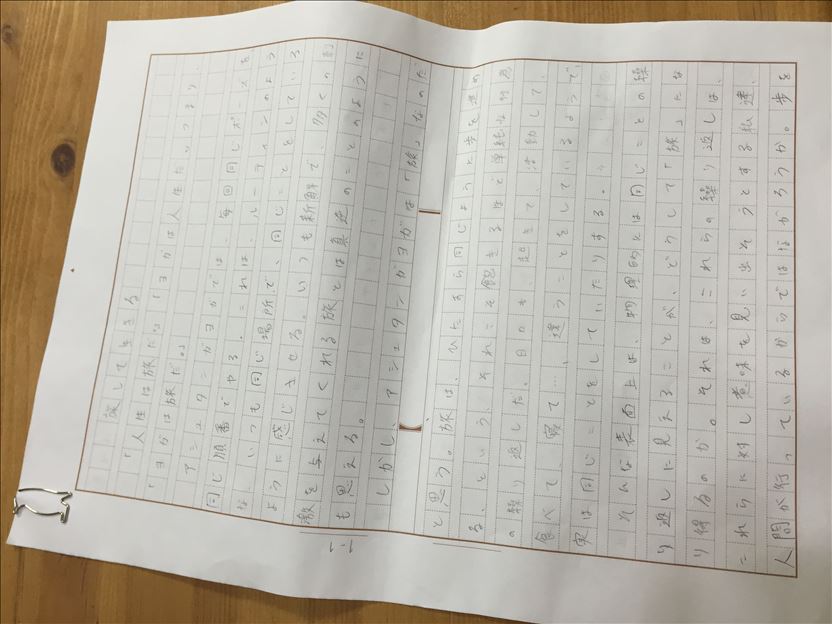 旅して生きる
「人生は旅だ。」「ヨガは人生だ。」つまり、
「ヨガは旅だ。」
アシュタンガヨガでは毎回同じポーズを
同じ順番でやる。これは、ルーティンのよう
な、いつも同じ場所で、同じことをしている
ように感じさせる。いつも新鮮で、多くの刺
激を与えてくれる旅とは真逆のことのように
も思える。
しかし、アシュタンガヨガは「旅」なのだ
1-1
と思う。旅は、ひたすら同じように歩を進め
る、という、それこそ飽きるほど単純な行為
の繰り返しだ。日々も、起きて、活動して、
食べて、寝て…、違うことをしているようで、
実は同じことをしていたりする。
そんな表面上は、物理的には同じことの繰
り返しに見えることが、どうして「旅」にな
り得るのか。それは、これらの繰り返しは、
これらに対し意味を見い出そうとする私達、
人間が行っているからではなかろうか。歩を